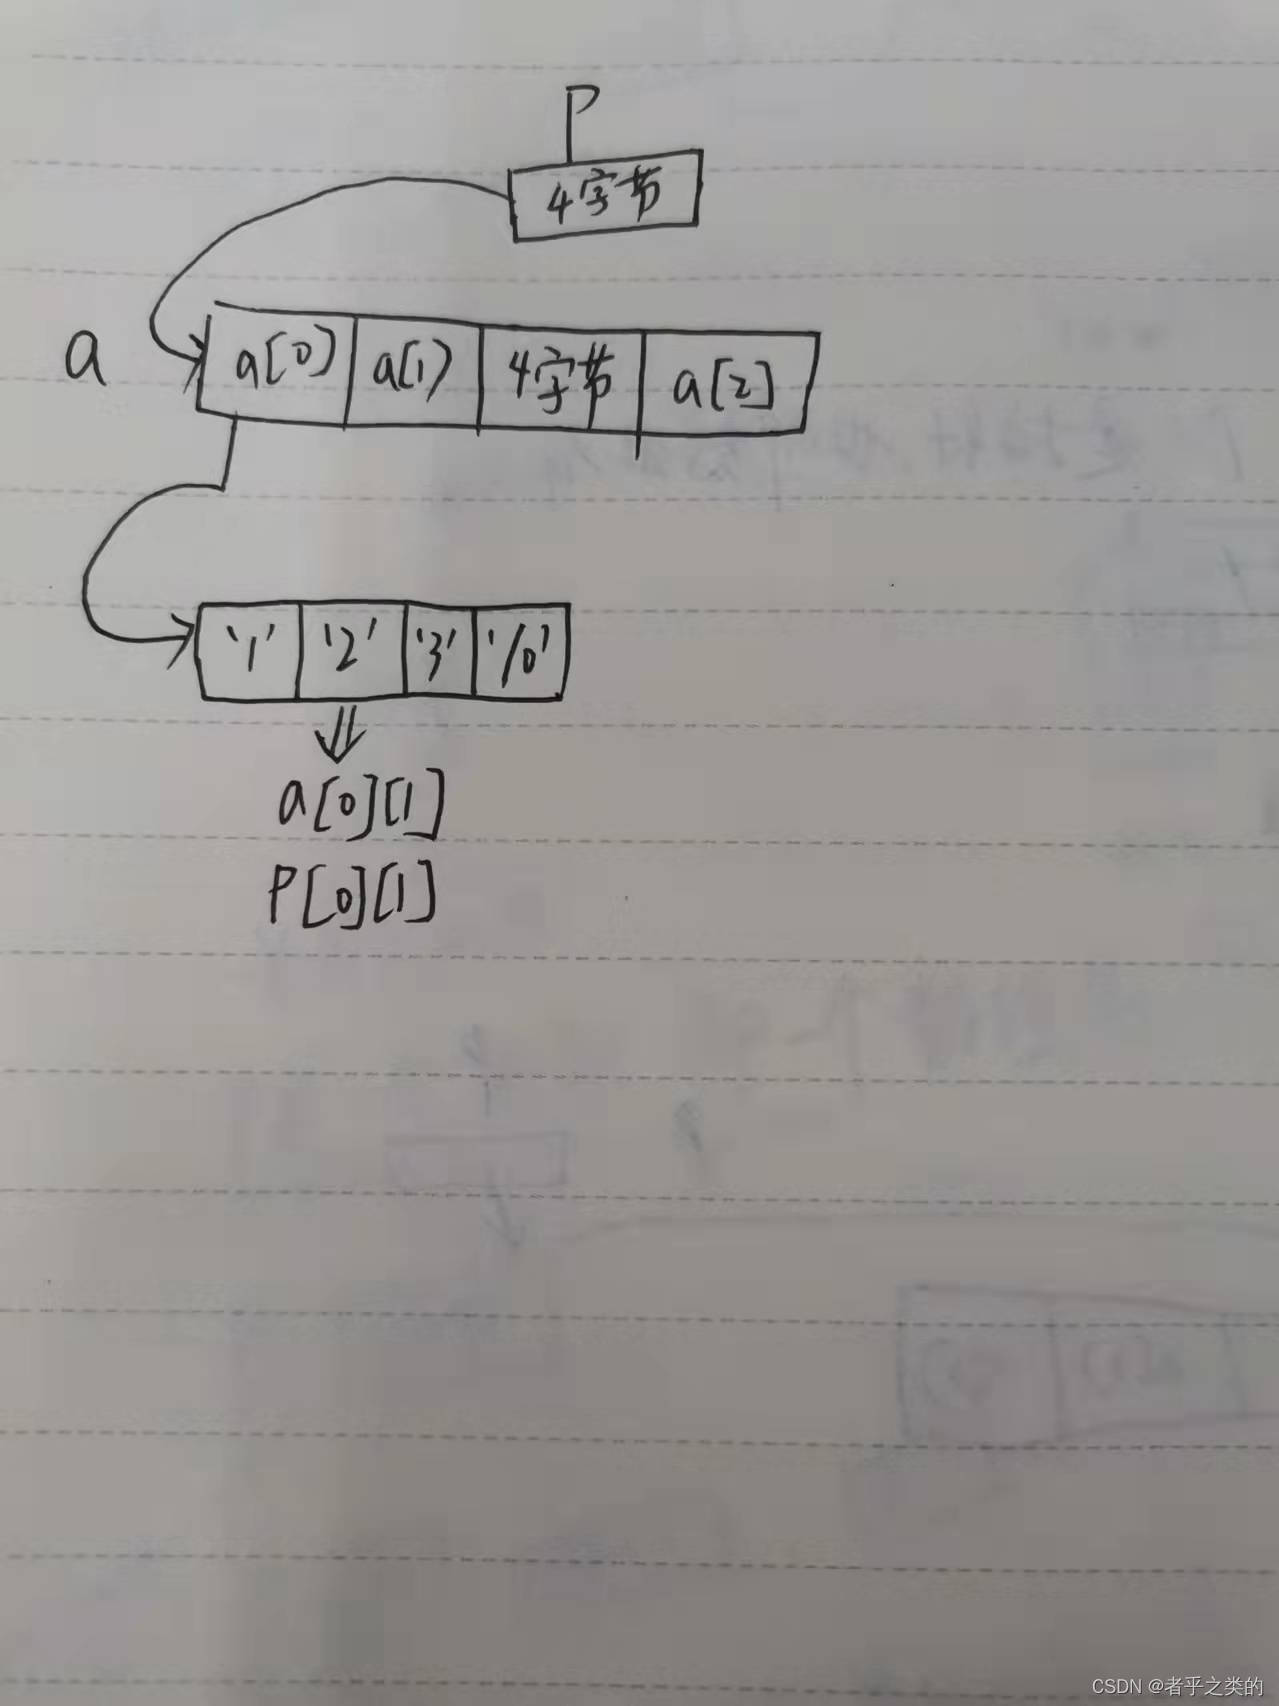 P
4字节
a
a[0] a[1] 4字节 a[2]
'1' '2' '3' '/0'
a[0][1]
P[0][1]
CSDN @者乎之类的